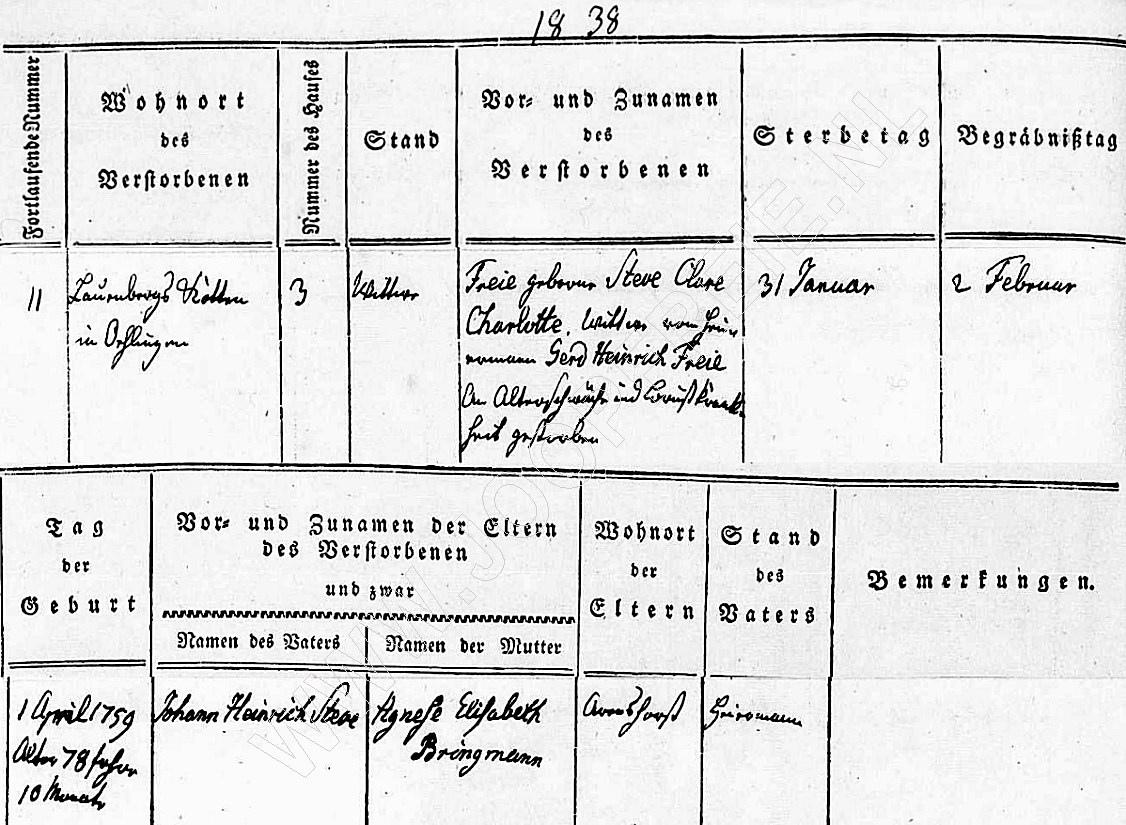 1838
Fortlaufende Nummer
Wohnort
des
Verstorbenen
Nummer des Hauses
Stand
Vor- und Zunamen
des
Verstorbenen
Sterbetag
Begräbnißtag
11
Laurenbergs Kotten
in Oehlingen
3
Wittwe
Freie geborne Steve Clare
Charlotte, Wittwe vom Heuer
mann Gerd Heinrich Freie
An Altersschwäche und Brustkrank
heit gestorben
31 Januar
2 Februar
Tag
der
Geburt
Vor- und Zunamen der Eltern
des Verstorbenen
und zwar
Namen des Vaters
Namen der Mutter
Wohnort
der
Eltern
Stand
des
Vaters
Bemerkungen.
1 April 1759
Alter 78 Jahre
10 Monate
Johann Heinrich Steve
Agnese Elisabeth
Bringmann
Arenshorst
Heuermann
WWW.JOOPBREE.NL